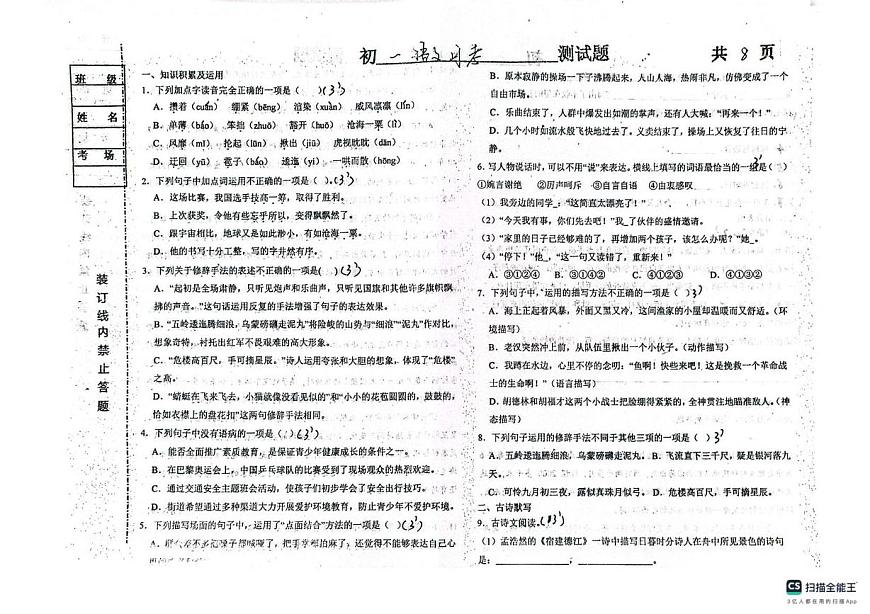 初一语文月考 测试题 共 8 页
班 级
姓 名
考 场
装订线内禁止答题
一、知识积累及运用
1. 下列加点字读音完全正确的一项是（ ）(3')
A. 攒着（cuán） 绷紧（bēng） 渲染（xuàn） 威风凛凛（lǐn）
B. 单薄（báo） 笨拙（zhuō） 豁开（huō） 沧海一粟（lì）
C. 风靡（mǐ） 抡起（lūn） 揪出（jiū） 虎视眈眈（dān）
D. 迂回（yū） 苞子（báo） 逶迤（yí） 一哄而散（hōng）
2. 下列句子中加点词运用不正确的一项是（ ）(3')
A. 这场比赛，我国选手技高一筹，取得了胜利。
B. 上次获奖，令他有些忘乎所以，变得飘飘然了。
C. 跟宇宙相比，地球又是如此渺小，有如沧海一粟。
D. 他的书写十分工整，写的字井然有序。
3. 下列关于修辞手法的表述不正确的一项是（ ）(3')
A. “起初是全场肃静，只听见炮声和乐曲声，只听见国旗和其他许多旗帜飘
拂的声音。”这句话运用反复的手法增强了句子的表达效果。
B. “五岭逶迤腾细浪，乌蒙磅礴走泥丸”将险峻的山势与“细浪”“泥丸”作对比，
想象奇特，衬托出红军不畏艰难的高大形象。
C. “危楼高百尺，手可摘星辰。”诗人运用夸张和大胆的想象，体现了“危楼”
之高。
D. “蜻蜓在飞来飞去，小猫就像没看见似的”和“小小的花苞圆圆的，鼓鼓的，
恰如衣襟上的盘花扣”这两句修辞手法相同。
4. 下列句子中没有语病的一项是（ ）(3')
A. 能否全面推广素质教育，是保证青少年健康成长的条件之一。
B. 在巴黎奥运会上，中国乒乓球队的比赛受到了现场观众的热烈欢迎。
C. 通过交通安全主题班会活动，使孩子们初步学会了安全出行技巧。
D. 街道希望通过多种渠道大力开展爱护环境教育，防止青少年不爱护环境。
5. 下列描写场面的句子中，运用了“点面结合”方法的一项是（ ）(3')
还觉得不能够表达自己心
B. 原本寂静的操场一下子沸腾起来，人山人海，热闹非凡，仿佛变成了一个
自由市场。
C. 乐曲结束了，人群中爆发出如潮的掌声，还有人大喊：“再来一个！”
D. 几个小时如流水般飞快地过去了。义卖结束了，操场上又恢复了往日的宁
静。
6. 写人物说话时，可以不用“说”来表达。横线上填写的词语最恰当的一组是（ ）3'
①婉言谢绝 ②厉声呵斥 ③自言自语 ④由衷感叹
（1）我旁边的同学_：“这简直太漂亮了！”
（2）“今天我有事，你们先去吧！”我_了伙伴的盛情邀请。
（3）“家里的日子已经够难的了，再增加两个孩子，该怎么办呢？”她_。
（4）“停下！”他_，“这一句又读错了，重新来！”
A. ③①②④ B. ③①④② C. ④①③② D. ④①③②
7. 下列句子中，运用的描写方法不正确的一项是（ ）3'
A. 海上正起着风暴，外面又黑又冷，这间渔家的小屋却温暖而又舒适。（环
境描写）
B. 老汉突然冲上前，从队伍里揪出一个小伙子。（动作描写）
C. 我蹲在水边，心里不停的念叨：“鱼啊！快些来吧！这是挽救一个革命战
士的生命啊！”（语言描写）
D. 胡德林和胡福才这两个小战士把脸绷得紧紧的，全神贯注地瞄准敌人。（神
态描写）
8. 下列句子运用的修辞手法不同于其他三项的一项是（ ）3'
A. 五岭逶迤腾细浪，乌蒙磅礴走泥丸。 B. 飞流直下三千尺，疑是银河落九
天。
C. 可怜九月初三夜，露似真珠月似弓。 D. 危楼高百尺，手可摘星辰。
二、古诗默写
9. 古诗文阅读。
（1）孟浩然的《宿建德江》一诗中描写日暮时分诗人在舟中所见景色的诗句
是：＿＿＿＿＿＿，＿＿＿＿＿＿。
CS 扫描全能王
3亿人都在用的扫描App